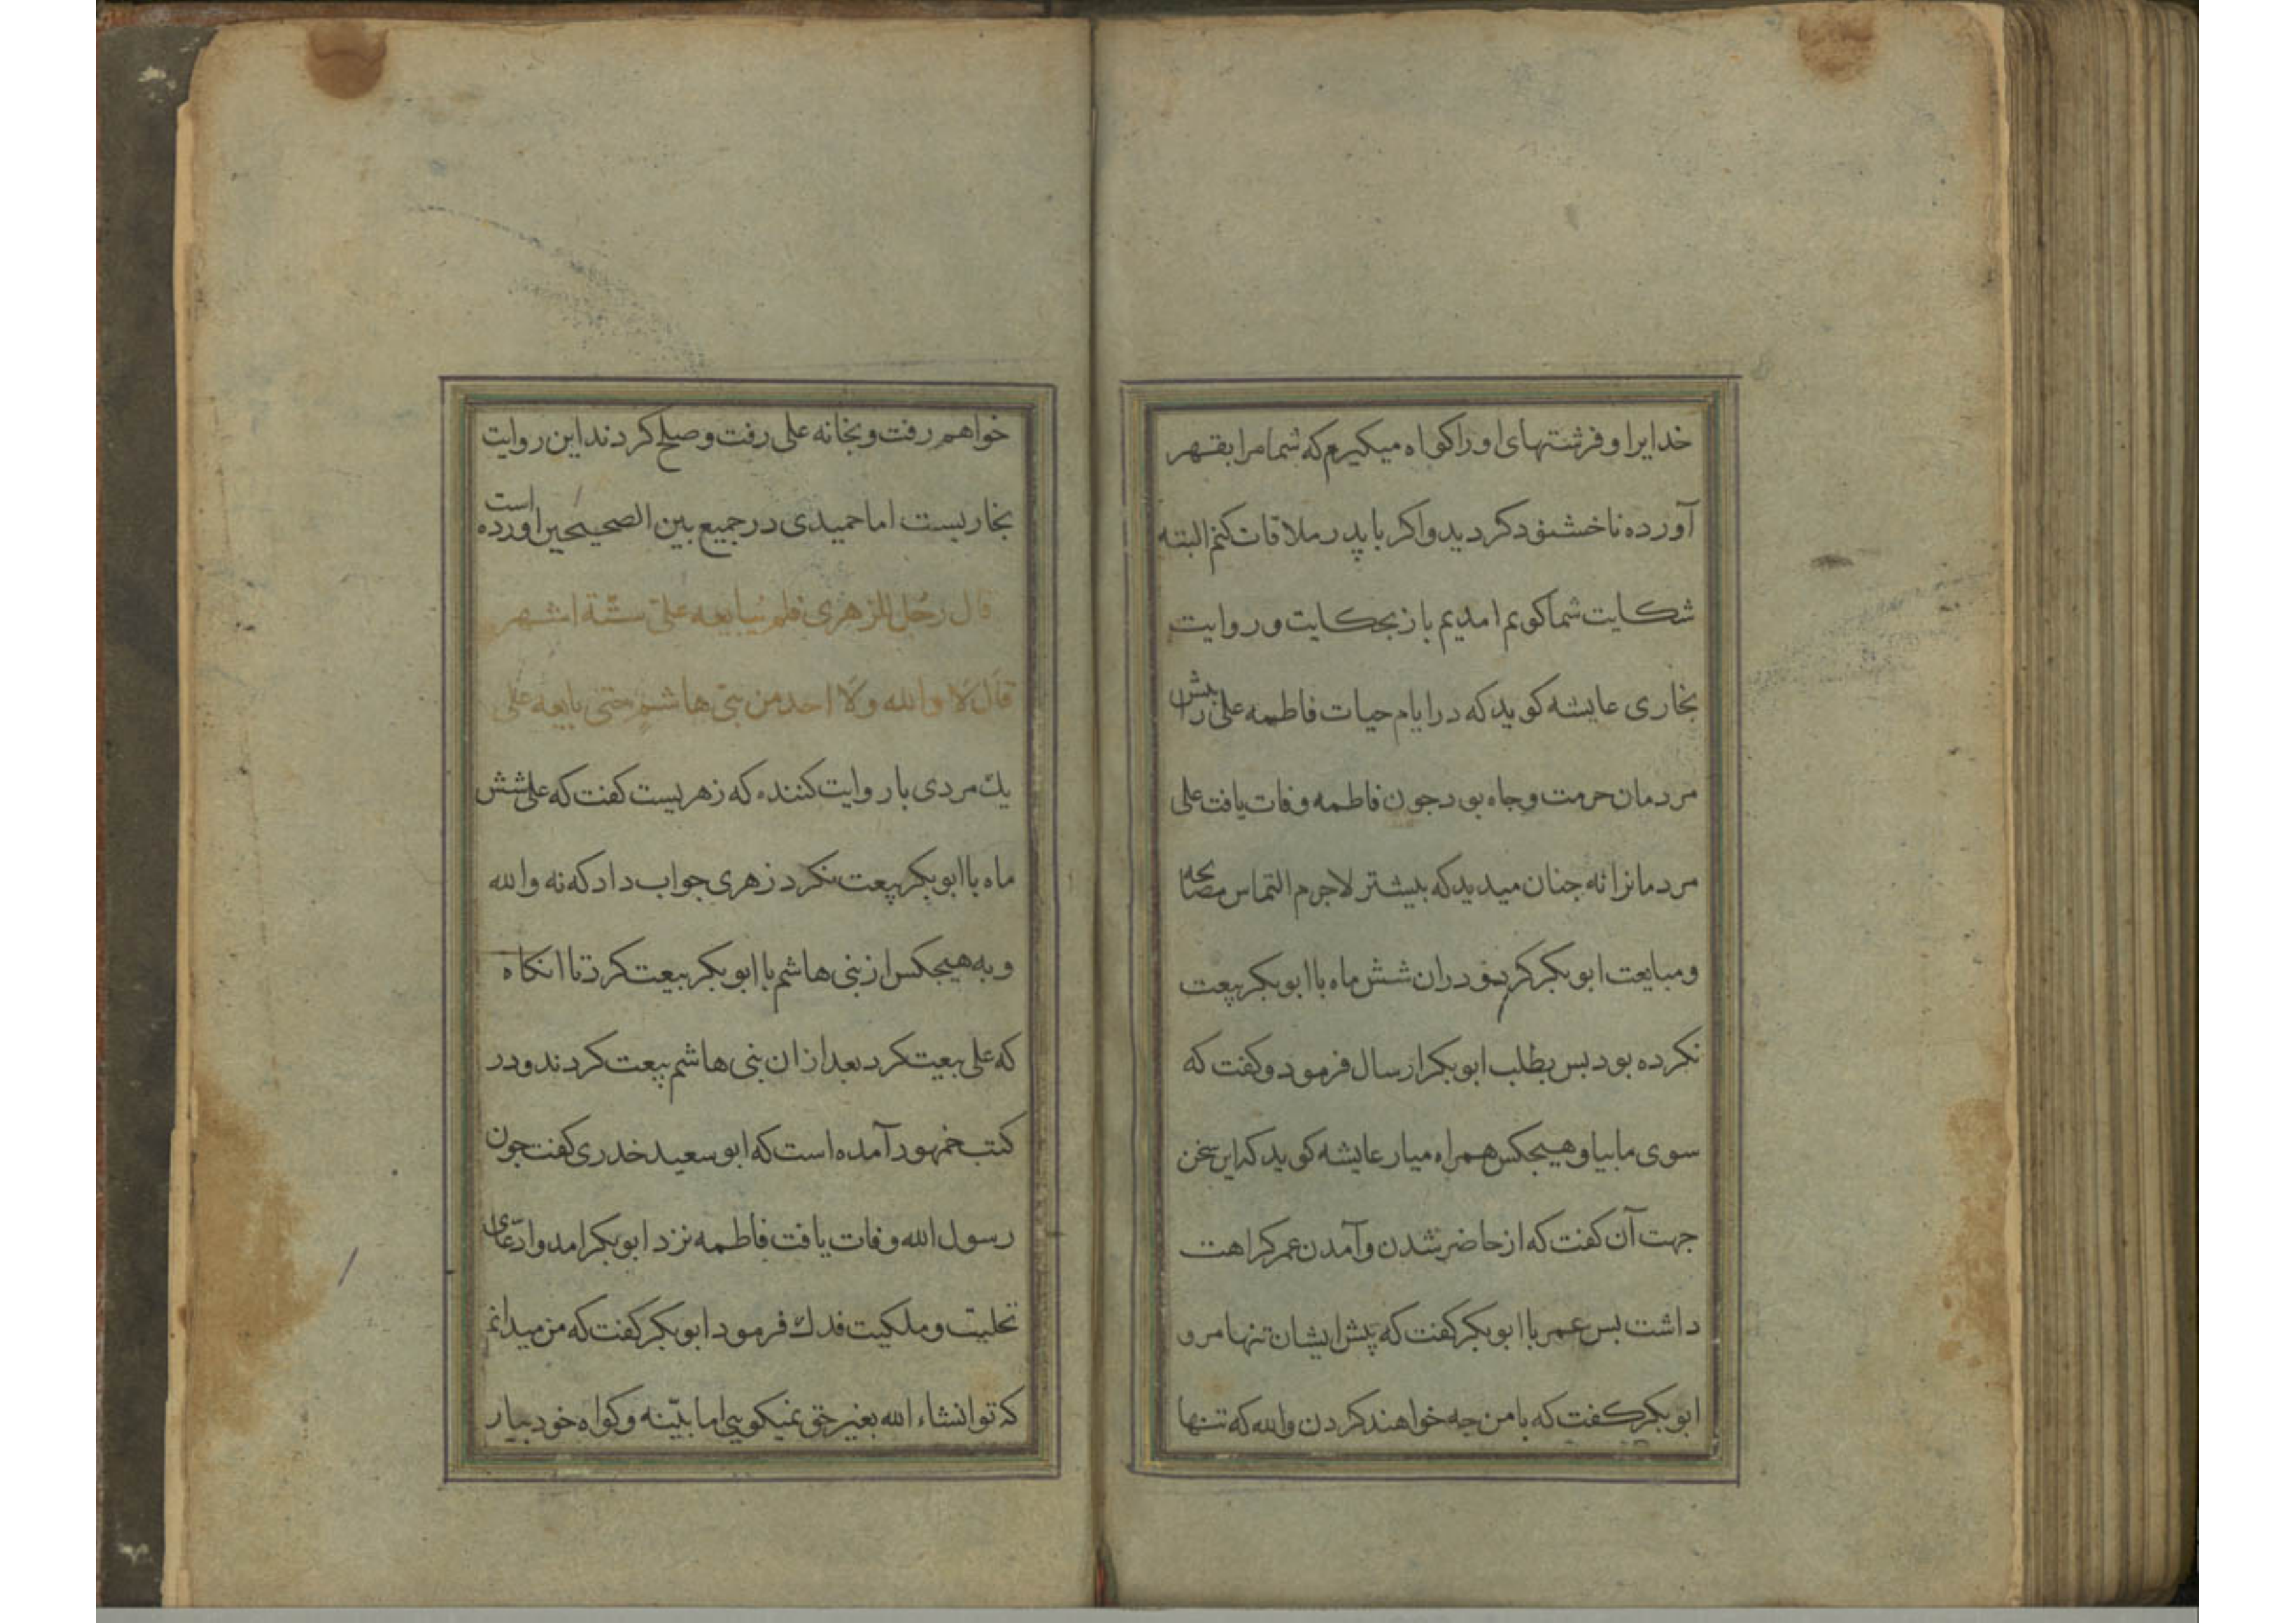 خدایرا و فرشتهای او را کواه میکیرم که شما مرا بقهر
آورده ناخشنود کردید و اکر با پدر ملاقات کنم البته
شکایت شما کویم امدیم باز بحکایت و روایت
بخاری عایشه کوید که در ایام حیات فاطمه علی را پیش
مردمان حرمت و جاه بود جون فاطمه وفات یافت علی
مردمانرا نه جنان میدید که بیشتر لاجرم التماس مصالحه
و مبایعت ابوبکر کرد و دران شش ماه با ابوبکر بیعت
نکرده بود بس بطلب ابوبکر ارسال فرمود و کفت که
سوی ما بیا و هیجکس همراه میار عایشه کوید که این سخن
جهت آن کفت که از حاضر شدن و آمدن عمر کراهت
داشت بس عمر با ابوبکر کفت که پیش ایشان تنها مرو
ابوبکر کفت که با من جه خواهند کردن والله که تنها
خواهم رفت و بخانه علی رفت و صلح کردند این روایت
بخاریست اما حمیدی در جمیع بین الصحیحین اورده است
قال رجل للزهری فلم یبایعه علی ستّة اشهر
قال لا والله ولا احد من بنی هاشم حتی بایعه علی
یك مردی با روایت کننده که زهریست کفت که علی شش
ماه با ابوبکر بیعت نکرد زهری جواب داد که نه والله
و به هیجکس از بنی هاشم با ابوبکر بیعت کرد تا انکاه
که علی بیعت کرد بعد از ان بنی هاشم بیعت کردند و در
کتب جمهور آمده است که ابو سعید خدری کفت جون
رسول الله وفات یافت فاطمه نزد ابوبکر امد و ادّعای
تحلیت و ملکیت فدك فرمود ابوبکر کفت که من میدانم
که تو انشاء الله بغیر حق نمیکویی اما بیّنه و کواه خود بیار